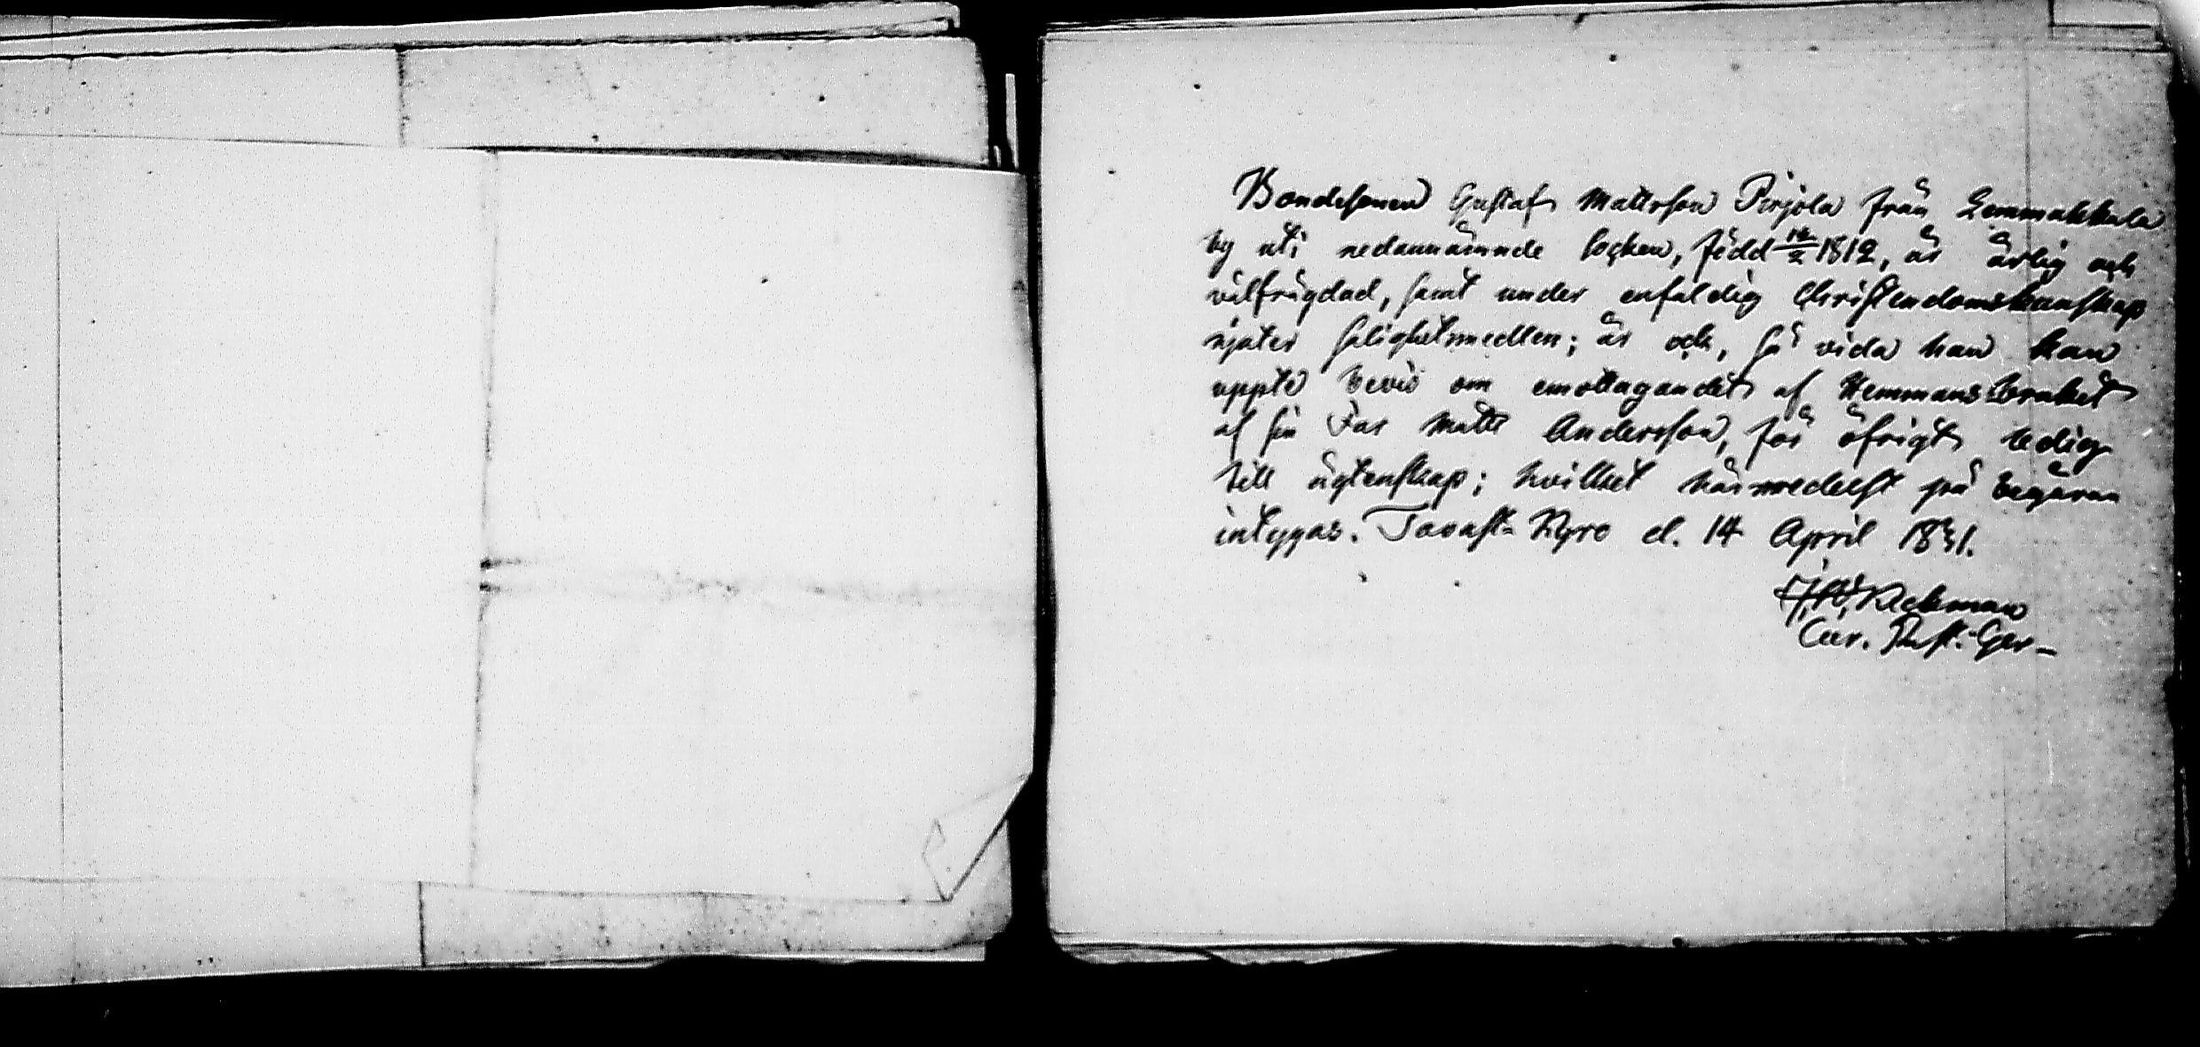 Bondesonen Gustaf Mattsson Pirjola från Lemmakkala
by uti nedannämnde Socken, född 1812, är ärlig och
välfrägdad, samt under enfaldig Christendomskunskap
njuter Salighetsmedlen; är och, så vida han kan
uppte bevis om emottagandet af Hemmansbruket
af sin Far Matts Andersson, för öfrigt ledig
till ägtenskap; hvilket härmedelst på begäran
intygas. Tavast-Kyro d. 14 April 1831.
Keckman
Cur. Past. Ger-